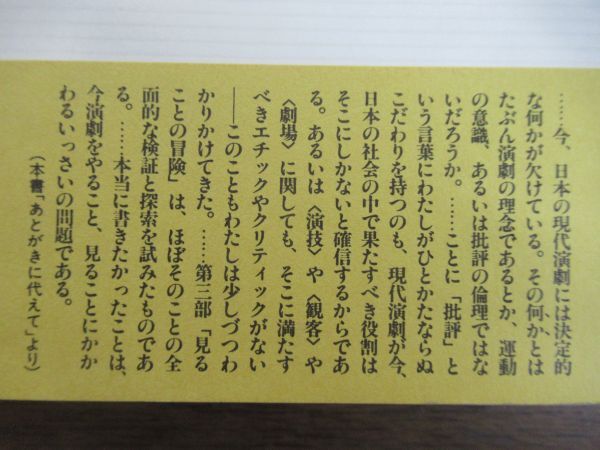 ……今、日本の現代演劇には決定的
な何かが欠けている。その何かとは
たぶん演劇の理念であるとか、運動
の意識、あるいは批評の倫理ではな
いだろうか。……ことに「批評」と
いう言葉にわたしがひとかたならぬ
こだわりを持つのも、現代演劇が今、
日本の社会の中で果たすべき役割は
そこにしかないと確信するからであ
る。あるいは〈演技〉や〈観客〉や
〈劇場〉に関しても、そこに満たす
べきエチックやクリティックがない
──このこともわたしは少しづつわ
かりかけてきた。……第三部「見る
ことの冒険」は、ほぼそのことの全
面的な検証と探索を試みたものであ
る。……本当に書きたかったことは、
今演劇をやること、見ることにかか
わるいっさいの問題である。
（本書「あとがきに代えて」より）